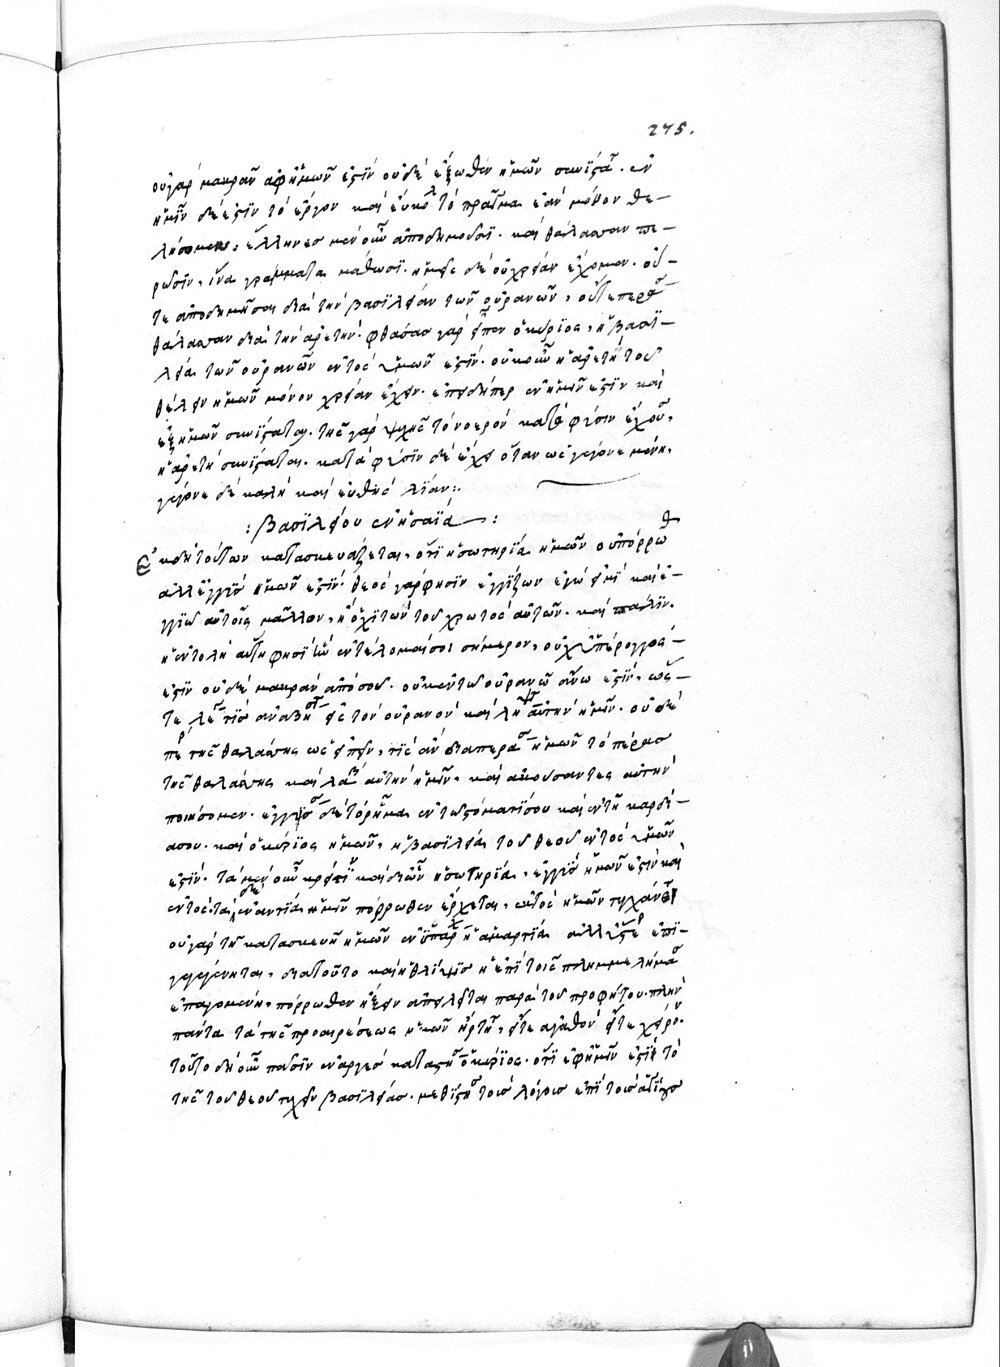 275.
οὐ γὰρ μακρὰν ἀφ' ἡμῶν ἐστὶν οὐδὲ ἔξωθεν ἡμῶν συνίστα. ἐν
ἡμῖν δέ ἐστιν τὸ ἔργον καὶ εὔκολ τὸ πρᾶγμα ἐὰν μόνον θε-
λήσομεν. ἕλληνες μὲν οὖν ἀποδημοῦσι. καὶ θάλασσαν πε-
ρῶσιν, ἵνα γράμματα μάθωσι. ἡμεῖς δὲ οὐ χρείαν ἔχομεν. οὔ-
τε ἀποδημῆσαι διὰ τὴν βασιλείαν τῶν οὐρανῶν, οὔτε περα
θάλασσαν διὰ τὴν ἀρετήν. φθάσας γὰρ εἶπεν ὁ κύριος, ἡ βασι-
λεία τῶν οὐρανῶν ἐντὸς ὑμῶν ἐστίν. οὐκοῦν ἡ ἀρετὴ τοῦ
θέλειν ἡμῶν μόνον χρείαν ἔχει. ἐπειδήπερ ἐν ἡμῖν ἐστὶν καὶ
ἐξ ἡμῶν συνίσταται. τῆς γὰρ ψυχῆς τὸ νοερὸν κατὰ φύσιν ἐχού,
ἡ ἀρετὴ συνίσταται. κατὰ φύσιν δὲ ἔχει ὅταν ὡς γέγονε μένῃ,
γέγονε δὲ καλὴ καὶ εὐθὴς λίαν:.
: βασιλείου ἐν ἠσαΐα :
Ἐκ δὴ τούτων κατασκευάζεται, ὅτι ἡ σωτηρία ἡμῶν οὐ πόρρωθ
ἀλλ' ἐγγὺς ἡμῶν ἐστίν. θεὸς γάρ φησιν ἐγγίζων ἐγώ εἰμι καὶ ἐ-
γγίω αὐτοῖς μᾶλλον, ἢ ὁ χιτὼν τοῦ χρωτὸς αὐτῶν. καὶ πάλιν.
ἡ ἐντολὴ αὕτη φησὶ ἣν ἐντέλομαί σοι σήμερον, οὐχ ὑπέρογγος
ἐστὶν οὐδὲ μακρὰν ἀπὸ σοῦ. οὐκ ἐν τῷ οὐρανῷ ἄνω ἐστίν, ὥς-
τε λε τίς ἀναβησ εἰς τὸν οὐρανὸν καὶ λη αὐτὴν ἡμῖν. οὐδὲ
πε τῆς θαλάσσης ὡς εἰπεῖν, τίς ἂν διαπερα ἡμῶν τὸ πέρας
τῆς θαλάσσης καὶ λαβ αὐτὴν ἡμῖν, καὶ ἀκούσαντες αὐτὴν
ποιήσομεν. ἐγγὺς δὲ τὸ ῥῆμα ἐν τῷ στόματί σου καὶ ἐν τῇ καρδί-
ᾳ σου. καὶ ὁ κύριος ἡμῶν, ἡ βασιλεία τοῦ θεοῦ ἐντὸς ὑμῶν
ἐστίν. τὰ μὲν οὖν κρείττ καὶ δι' ὧν ἡ σωτηρία, ἐγγὺς ἡμῶν ἐστιν καὶ
ἐντός. τὰ δὲ ἐναντία ἡμῖν πόρρωθεν ἔρχεται, ἐκτὸς ἡμῶν τυχάν
οὐ γὰρ τῇ κατασκευῇ ἡμῶν ἐνυπαρ ἡ ἁμαρτία ἀλλ' ὕστερ ἐπι-
γεγένηται, διατοῦτο καὶ ἡ θλίψις ἡ ἐπὶ τοῖς πλημμελήμα
ἐπαγομένη, πόρρωθεν ἥξειν ἀπείληται παρὰ τοῦ προφήτου. πλὴν
πάντα τὰ τῆς προαιρέσεως ἡμῶν ἤρτη, εἴτε ἀγαθὸν εἴτε χεῖρον.
τοῦτο δὴ οὖν πᾶσιν ἐναργὲς κατεστησ ὁ κύριος. ὅτι ἐφ' ἡμῖν ἐστὶ τὸ
τῆς τοῦ θεοῦ τυχεῖν βασιλείας. μεθίστη τοῖς λόγοις ἐπὶ τοῖς